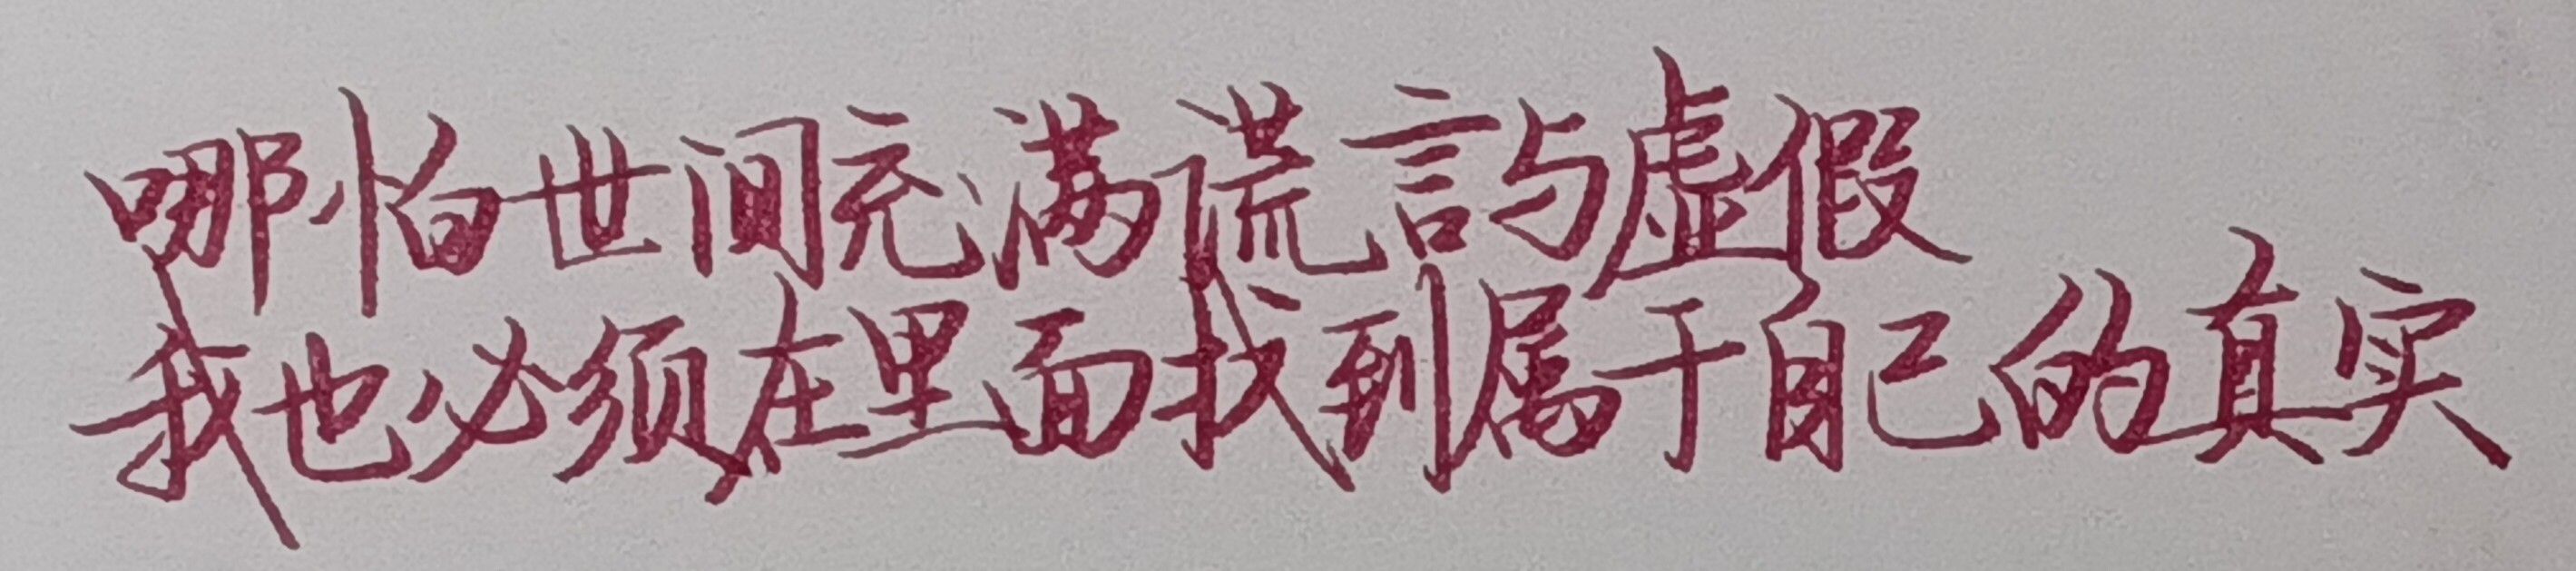 哪怕世间充满谎言与虚假
我也必须在里面找到属于自己的真实